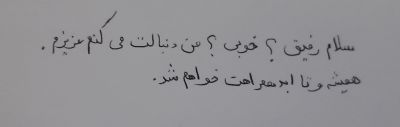 سلام رفیق؟ خوبی؟ من دنبالت می کنم عزیزم.
همیشه و تا ابد همراهت خواهم شد.